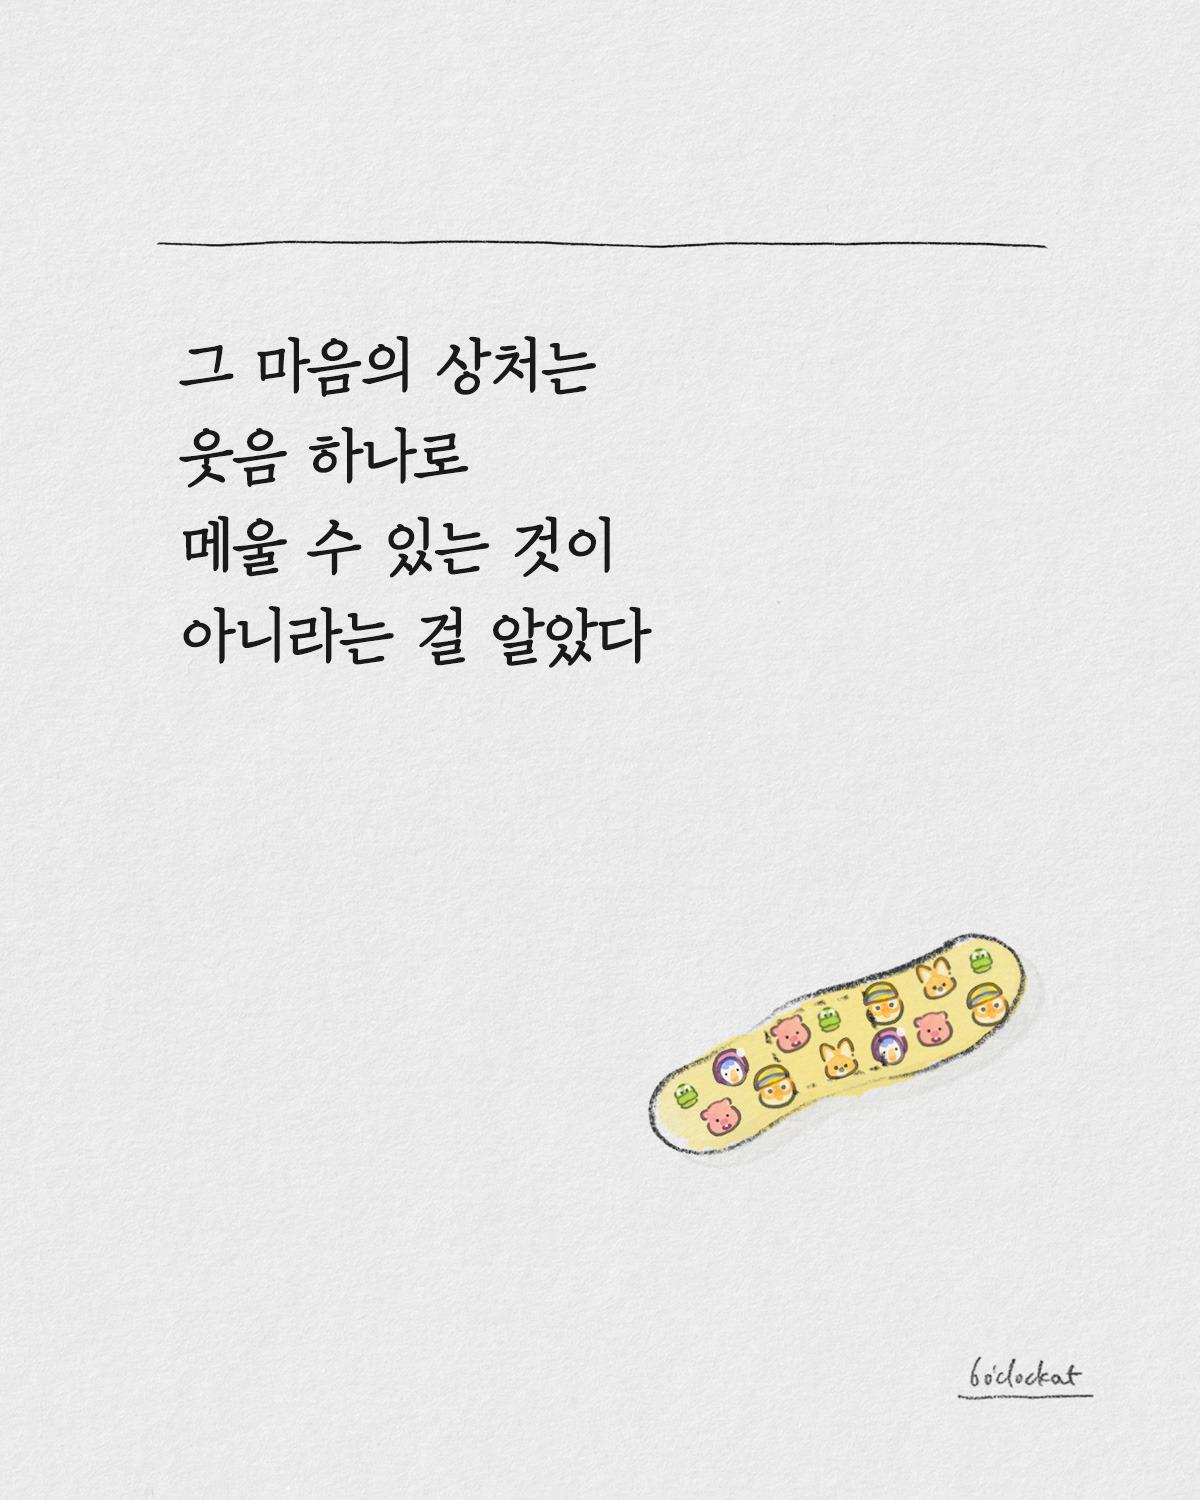 그 마음의 상처는
웃음 하나로
메울 수 있는 것이
아니라는 걸 알았다
6o'clockat